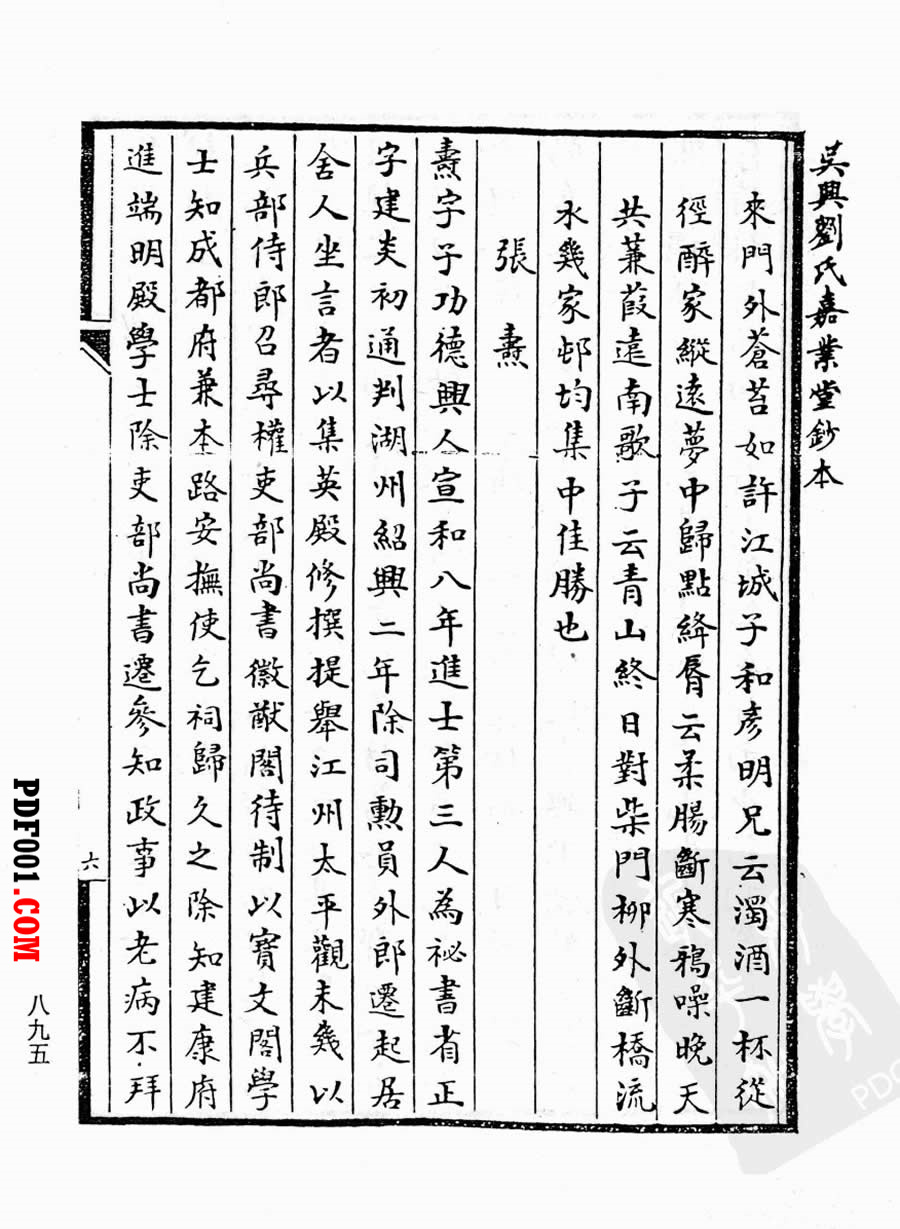 吳興劉氏嘉業堂鈔本
來門外蒼苔如許江城子和彥明兄云濁酒一杯從
徑醉家縱遠夢中歸點絳脣云柔腸斷寒鴉噪晚天
共蒹葭遠南歌子云青山終日對柴門柳外斷橋流
水幾家邨均集中佳勝也
張燾
燾字子功德興人宣和八年進士第三人為祕書省正
字建炎初通判湖州紹興二年除司勳員外郎遷起居
舍人坐言者以集英殿修撰提舉江州太平觀未幾以
兵部侍郎召尋權吏部尚書徽猷閣待制以寶文閣學
士知成都府兼本路安撫使乞祠歸久之除知建康府
進端明殿學士除吏部尚書遷參知政事以老病不拜
六
八九五
PDF001.COM